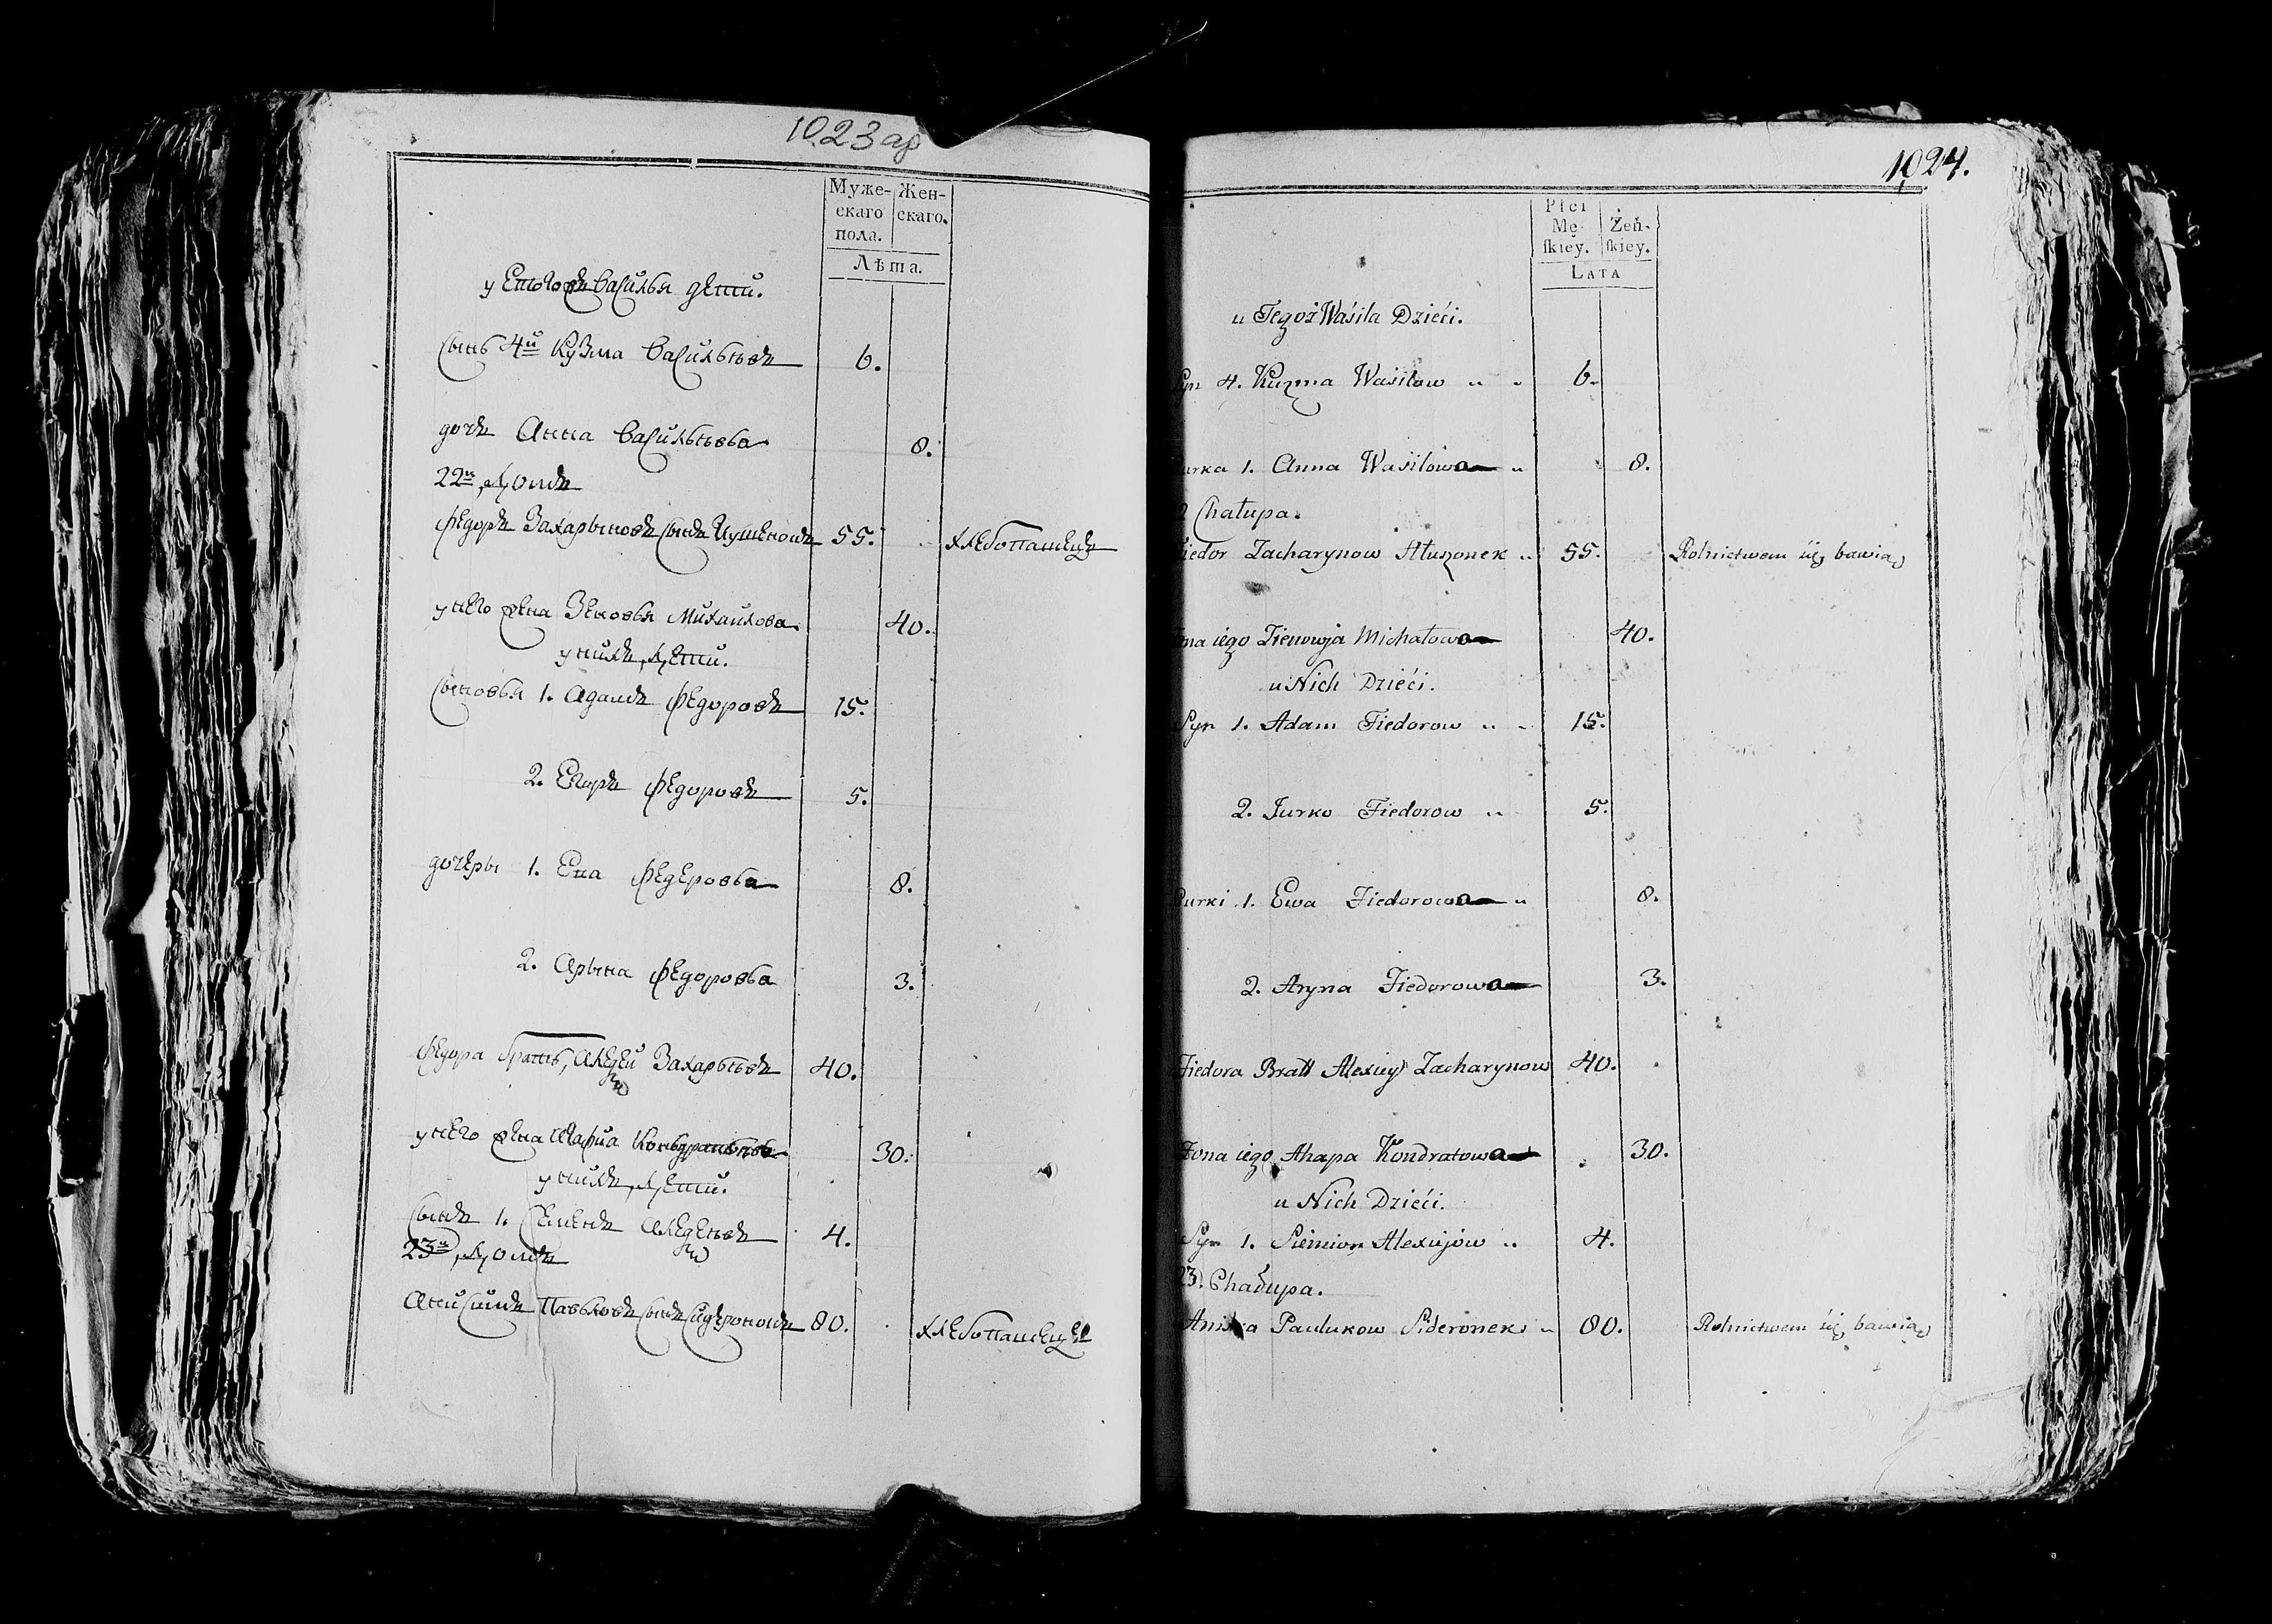 1023 ар
Муже- Жен-
скаго скаго.
пола.
Лѣта.
у Тогожъ Василья дети.
Сынъ 4й Кузма Васильевъ 6.
дочъ Анна Васильева 8.
22й домъ
Федоръ Захарыновъ Сынъ 55. хлебопашецъ
у него жена Зеновья Михаилова 40.
у нихъ дети.
Сыновья 1. Адамъ Федоровъ 15.
2. Егоръ Федоровъ 5.
дочеры 1. Ева Федерова 8.
2. Арына Федорова 3.
Федора братъ, Алексей Захарьевъ 40.
у него жена Агафиа 30.
у нихъ дети.
Сынъ 1. Семенъ 4.
23й домъ
Анисимъ Павлювъ Сынъ Сидеронокъ 80. хлебопашецъ
1024.
Płci
Mę- Żeń-
ſkiey. ſkiey.
LATA
u Tegoż Waśila Dzieći.
Syn 4. Kuzma Waśilow „ „ 6.
Curka 1. Anna Waśilowa „ 8.
2 Chałupa.
Fiedor Zacharynow 55. Rolnictwem się bawią
Żona iego Zienowja Michałowa 40.
u Nich Dzieći.
Syn 1. Adam Fiedorow „ „ 15.
2. Jurko Fiedorow „ 5.
Curki 1. Ewa Fiedorowa „ 8.
2. Aryna Fiedorowa 3.
Fiedora Bratt Alexiey Zacharynow 40.
Żona iego Ahapa Kondratowa 30.
u Nich Dzieći.
Syn 1. Siemion Alexijow „ 4.
23. Chałupa.
Paulukow Sideronek „ 80. Rolnictwem się bawią